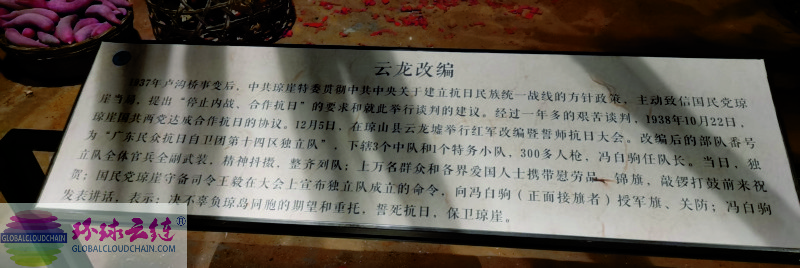 云龙改编
1937年卢沟桥事变后，中共琼崖特委贯彻中共中央关于建立抗日民族统一战线的方针政策，主动致信国民党琼
崖当局，提出“停止内战、合作抗日”的要求和就此举行谈判的建议。经过一年多的艰苦谈判，1938年10月22日，
琼崖国共两党达成合作抗日的协议。12月5日，在琼山县云龙墟举行红军改编暨誓师抗日大会。改编后的部队番号
为“广东民众抗日自卫团第十四区独立队”，下辖3个中队和1个特务小队，300多人枪，冯白驹任队长。当日，独
立队全体官兵全副武装，精神抖擞，整齐列队；上万名群众和各界爱国人士携带慰劳品、锦旗，敲锣打鼓前来祝
贺；国民党琼崖守备司令王毅在大会上宣布独立队成立的命令，向冯白驹（正面接旗者）授军旗、关防；冯白驹
发表讲话，表示：决不辜负琼岛同胞的期望和重托，誓死抗日，保卫琼崖。
环球云链®
GLOBALCLOUDCHAIN
GLOBALCLOUDCHAIN.COM